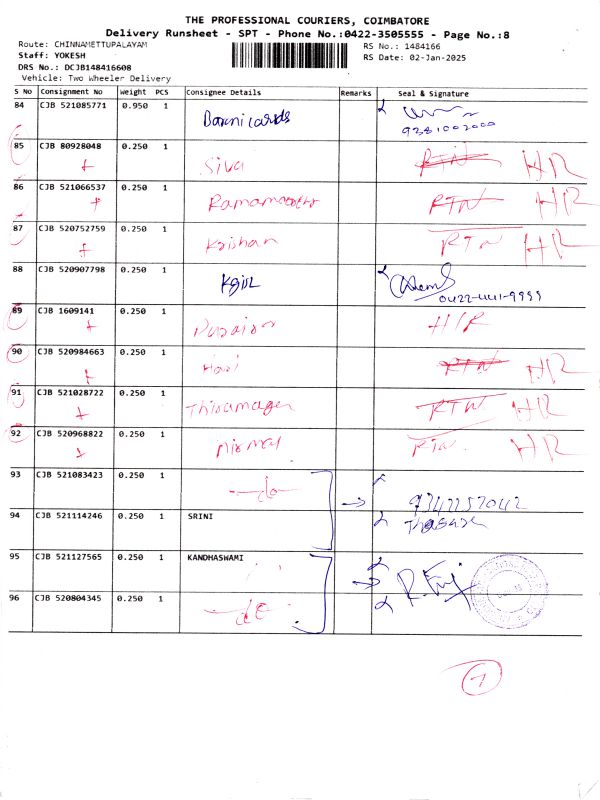 THE PROFESSIONAL COURIERS, COIMBATORE
Delivery Runsheet - SPT - Phone No.:0422-3505555 - Page No.:8
Route: CHINNAMETTUPALAYAM
RS No.: 1484166
Staff: YOKESH
RS Date: 02-Jan-2025
DRS No.: DCJB148416608
Vehicle: Two Wheeler Delivery
S No Consignment No Weight PCS Consignee Details Remarks Seal & Signature
84 CJB 521085771 0.950 1
85 CJB 80928048 0.250 1 Siva RTN HR
86 CJB 521066537 0.250 1 RTN HR
87 CJB 520752759 0.250 1 Krishan RTN HR
88 CJB 520907798 0.250 1
0422-4411-9999
89 CJB 1609141 0.250 1 HR
90 CJB 520984663 0.250 1 Hari RTN HR
91 CJB 521028722 0.250 1 RTN HR
92 CJB 520968822 0.250 1 Nirmal RTN HR
93 CJB 521083423 0.250 1 -do-
94 CJB 521114246 0.250 1 SRINI
95 CJB 521127565 0.250 1 KANDHASWAMI
96 CJB 520804345 0.250 1 -do-